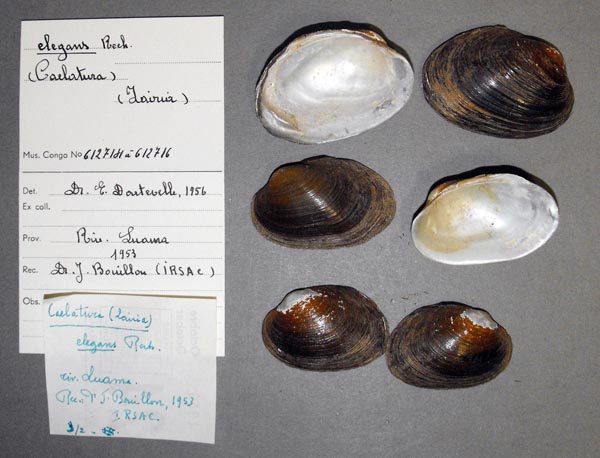 elegans Rech.
(Caelatura)
(Zairia)
Mus. Congo No 612714 à 612716
Det. Dr. E. Dartevelle, 1956
Ex coll.
Prov. Riv. Luama
1953
Rec. Dr. J. Bouillon (IRSAC)
Obs.
Caelatura (Zairia)
elegans Rech.
riv. Luama.
Rec. Dr J. Bouillon, 1953
IRSAC.